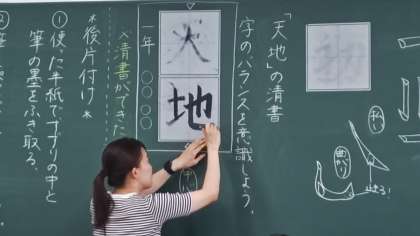 「天地」の清書
字のバランスを意識しよう。
曲がり
天
地
一年 〇〇〇〇
清書ができた
*後片付け*
①使った半紙でスズリの中と
筆の墨をふき取る。
②